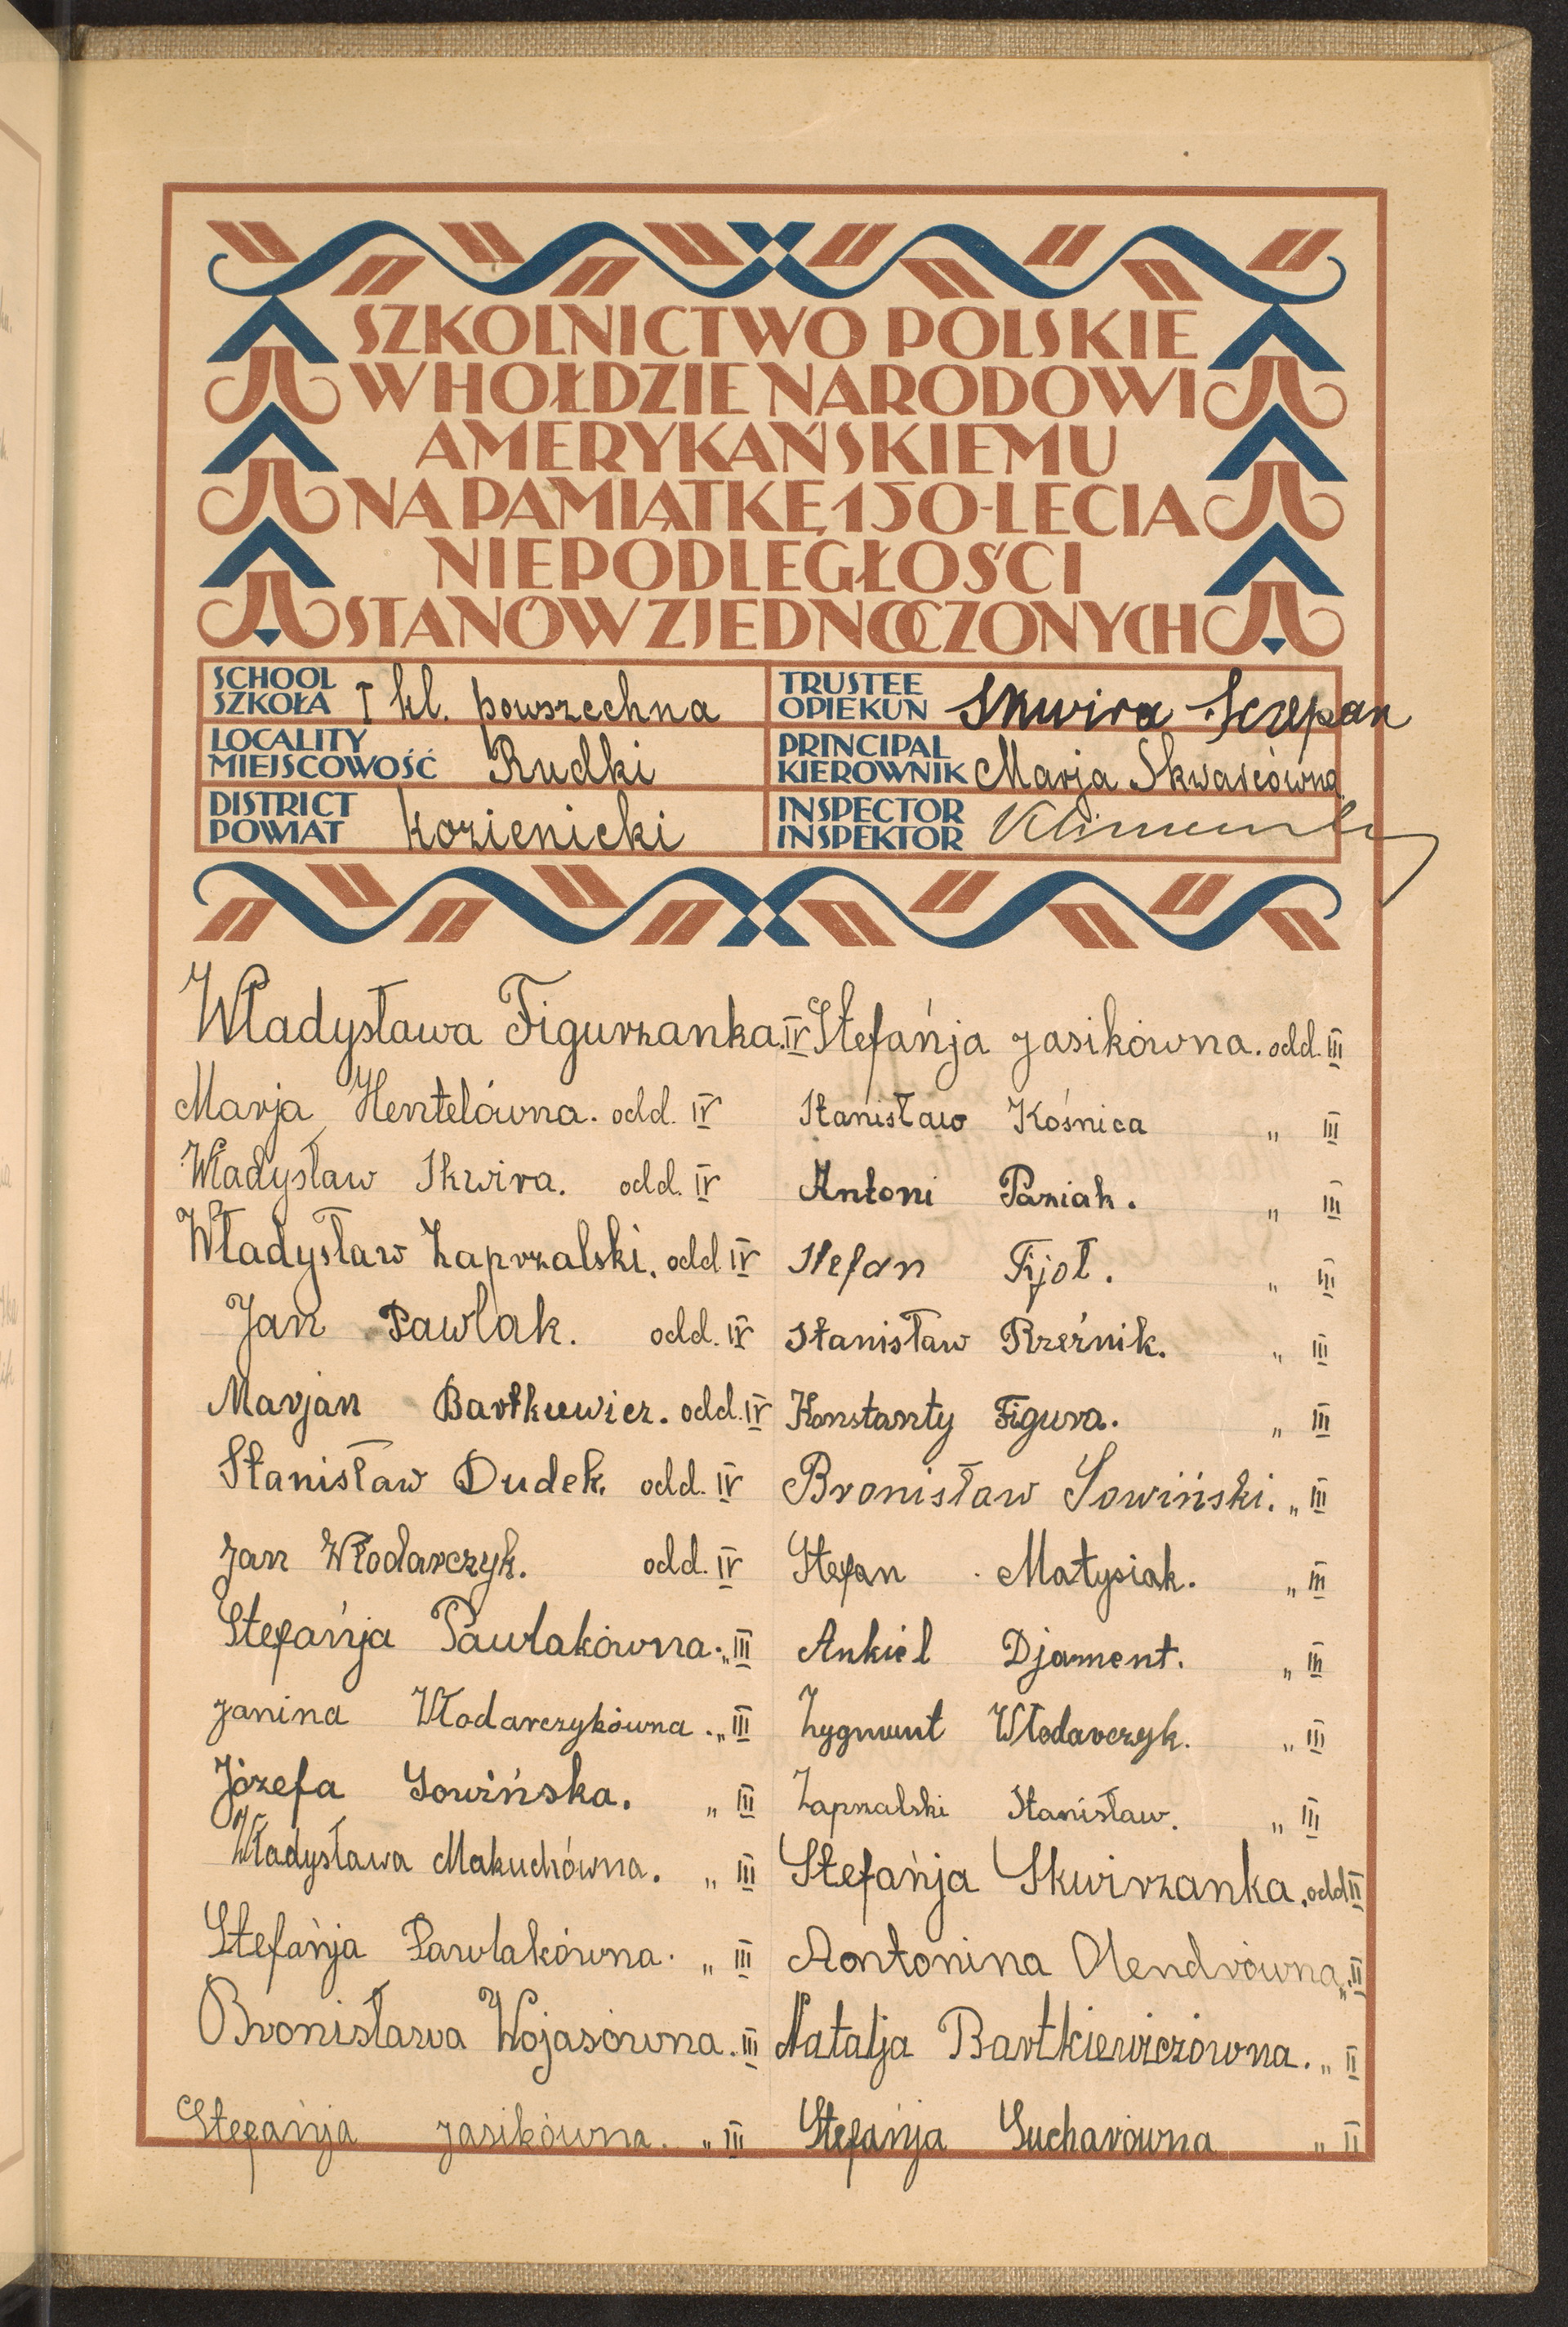 SZKOLNICTWO POLSKIE
W HOŁDZIE NARODOWI
AMERYKAŃSKIEMU
NA PAMIĄTKĘ 150-LECIA
NIEPODLEGŁOŚCI
STANÓW ZJEDNOCZONYCH
SCHOOL
SZKOŁA I kl. powszechna
LOCALITY
MIEJSCOWOŚĆ Rudki
DISTRICT
POWIAT Kozienicki
TRUSTEE
OPIEKUN Skwira Sczepan
PRINCIPAL
KIEROWNIK Marja Skwarcówna
INSPECTOR
INSPEKTOR
Władysława Figurzanka. IV
Marja Hentelówna. odd. IV
Władysław Skwira. odd. IV
Władysław Zaprzalski. odd IV
Jan Pawlak. odd. IV
Marjan Bartkuwicz. odd. IV
Stanisław Dudek. odd. IV
Jan Włodarczyk. odd. IV
Stefańja Pawlakówna. „ III
Janina Włodarczykówna. „ III
Józefa Sowińska. „ III
Władysława Makuchówna. „ III
Stefańja Pawlakówna. „ III
Bronisława Wojasówna. III
Stefańja Jasikówna. „ III
Stefańja Jasikówna. odd. III
Stanisław Kośnica „ III
Antoni Paziak. „ III
Stefan Fijoł. „ III
Stanisław Rzeźnik. „ III
Konstanty Figura. „ III
Bronisław Sowiński. „ III
Stefan Małysiak. „ III
Ankiel Djament. „ III
Zygmunt Włodarczyk. „ III
Zaprzalski Stanisław. „ III
Stefańja Skwirzanka. odd II
Aontonina Olendrówna „ II
Natalja Bartkiewiczówna. „ II
Stefańja Sucharówna „ II